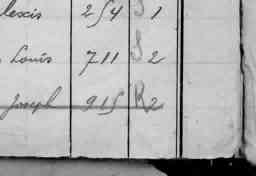 lexis 254 S 1
Louis 711 S 2
Joseph 915 R2